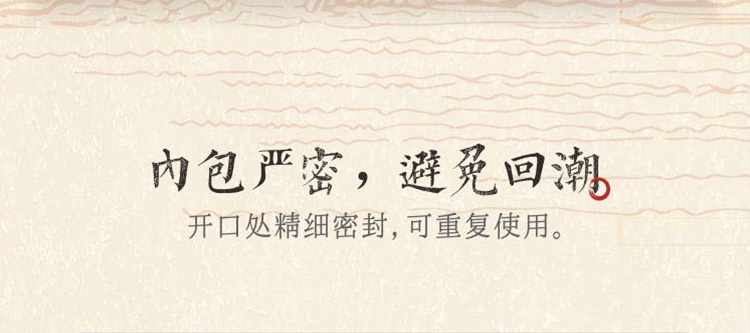 内包严密，避免回潮。
开口处精细密封,可重复使用。